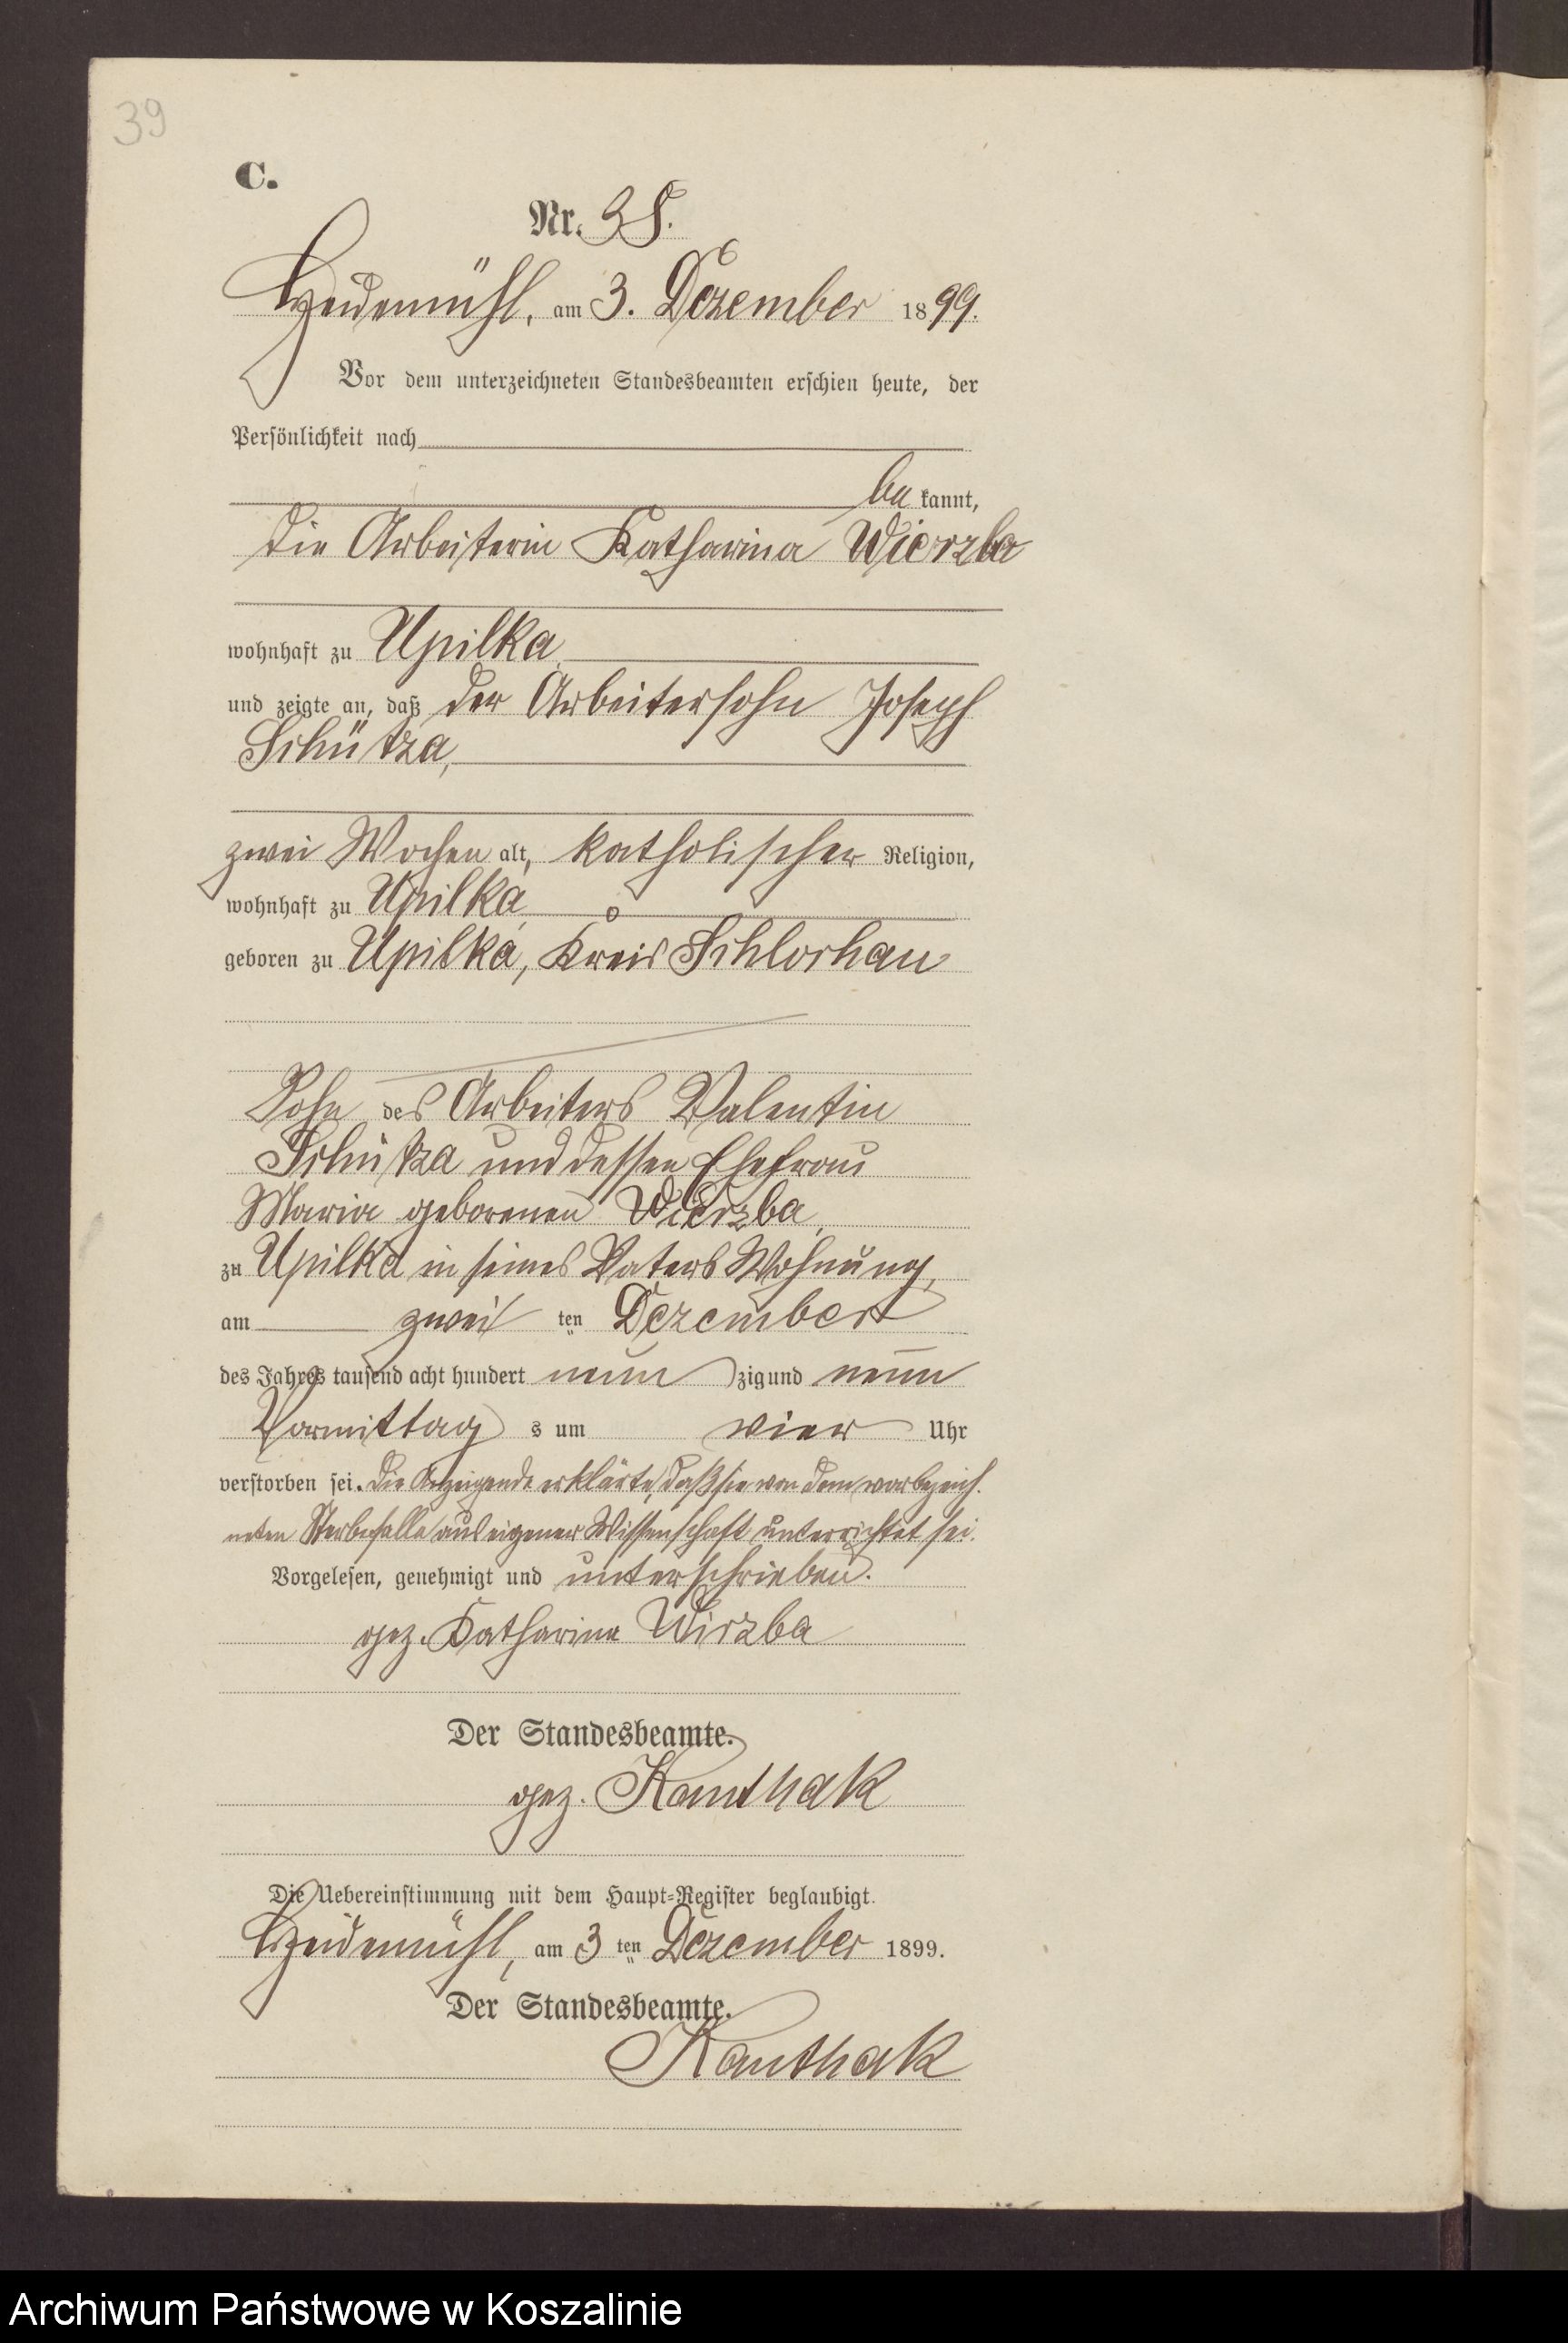 39
C.
Nr. 38.
Heidemühl, am 3. Dezember 1899.
Vor dem unterzeichneten Standesbeamten erschien heute, der
Persönlichkeit nach
be kannt,
die Arbeiterin Katharina Wierzba
wohnhaft zu Upilka
und zeigte an, daß der Arbeitersohn Joseph
Schützа,
zwei Wochen alt, katholischer Religion,
wohnhaft zu Upilka
geboren zu Upilka, Kreis Schlochau
Sohn des Arbeiters Valentin
Schütza und dessen Ehefrau
Maria geborenen Wierzba,
zu Upilka in seines Vaters Wohnung,
am zwei ten Dezember
des Jahres tausend acht hundert neun zig und neun
Vormittag s um vier Uhr
verstorben sei. Die Anzeigende erklärte, daß sie von dem vorbezeich-
neten Sterbefalle aus eigener Wissenschaft unterrichtet sei.
Vorgelesen, genehmigt und unterschrieben.
gez. Katharina Wirzba
Der Standesbeamte.
gez. Kanthak
Die Uebereinstimmung mit dem Haupt-Register beglaubigt.
Heidemühl, am 3 ten Dezember 1899.
Der Standesbeamte.
Kanthak
Archiwum Państwowe w Koszalinie